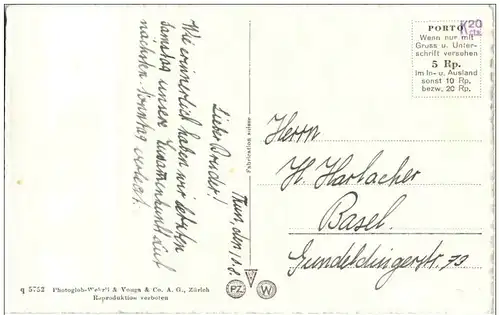 Thun, den 10.8.
Lieber Bruder!
Wie erinnerlich haben wir letzten
Samstag unsere Zusammenkunft auf
nächsten Sonntag verlegt.
q 5752 Photoglob-Wehrli & Vouga & Co. A. G., Zürich
Reproduktion verboten
Fabrication suisse
PZ
W
PORTO
Wenn nur mit
Gruss u. Unter-
schrift versehen
5 Rp.
Im In- u. Ausland
sonst 10 Rp.
bezw. 20 Rp.
K20
Herrn
H. Harlacher
Basel.
Gundeldingerstr. 73